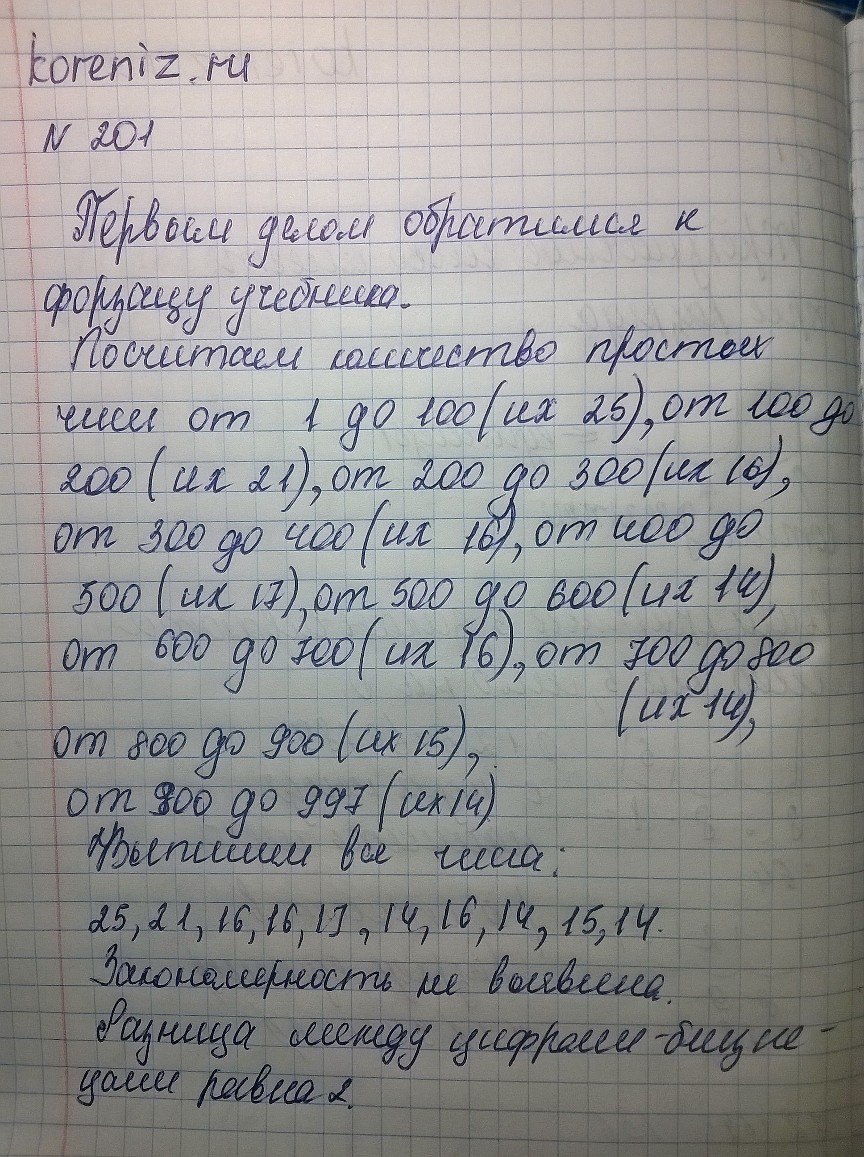 koreniz.ru
N 201
Первым делом обратимся к
форзацу учебника.
Посчитаем количество простых
чисел от 1 до 100 (их 25), от 100 до
200 (их 21), от 200 до 300 (их 16),
от 300 до 400 (их 16), от 400 до
500 (их 17), от 500 до 600 (их 14),
от 600 до 700 (их 16), от 700 до 800
(их 14),
от 800 до 900 (их 15),
от 900 до 997 (их 14)
Выпишем все числа:
25, 21, 16, 16, 17, 14, 16, 14, 15, 14.
Закономерность не выявлена.
Разница между цифрами-близне-
цами равна 2.